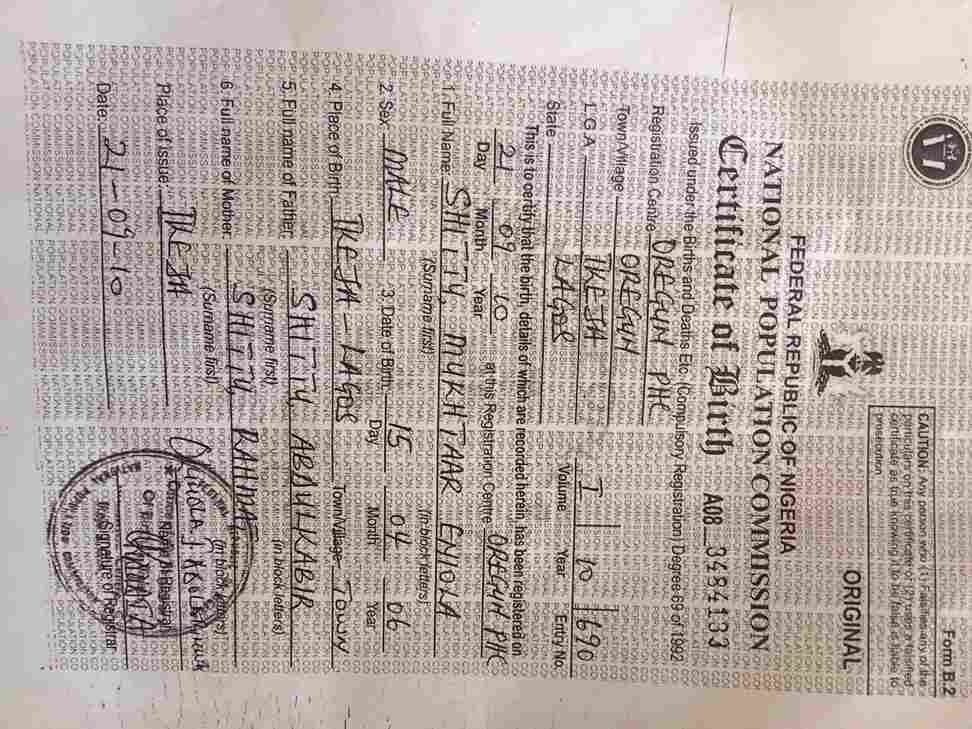 Form B.2
CAUTION: Any person who (1) Falsifies any of the
particulars on this certificate or (2) uses a falsified
certificate as true, knowing it to be false is liable to
prosecution
ORIGINAL
FEDERAL REPUBLIC OF NIGERIA
NATIONAL POPULATION COMMISSION
Certificate of Birth A08 3484133
Issued under the Births and Deaths Etc (Compulsory Registration) Degree 69 of 1992
Registration Centre OREGUN PHC
Town/Village OREGUN I 10 1690
L.G.A IKEJA Volume Year Entry No.
State LAGOS
This is to certify that the birth, details of which are recorded herein, has been registered on
21 09 10 at this Registration Centre OREGUN PHC
Day Month Year
1. Full Name: SHITTY, MYKHTAAR ENIOLA
(Surname first) (In block letters)
2. Sex MALE 3. Date of Birth 15 04 06
Day Month Year
4. Place of Birth IKEJA - LAGOS Town/Village TOWN
5. Full name of Father SHITTY, ABDULKABIR
(Surname first) (in block letters)
6. Full name of Mother SHITTY, RAHDAT
(Surname first) (in block letters)
Place of Issue: IKEJA
Date: 21-09-10 Signature of Registrar